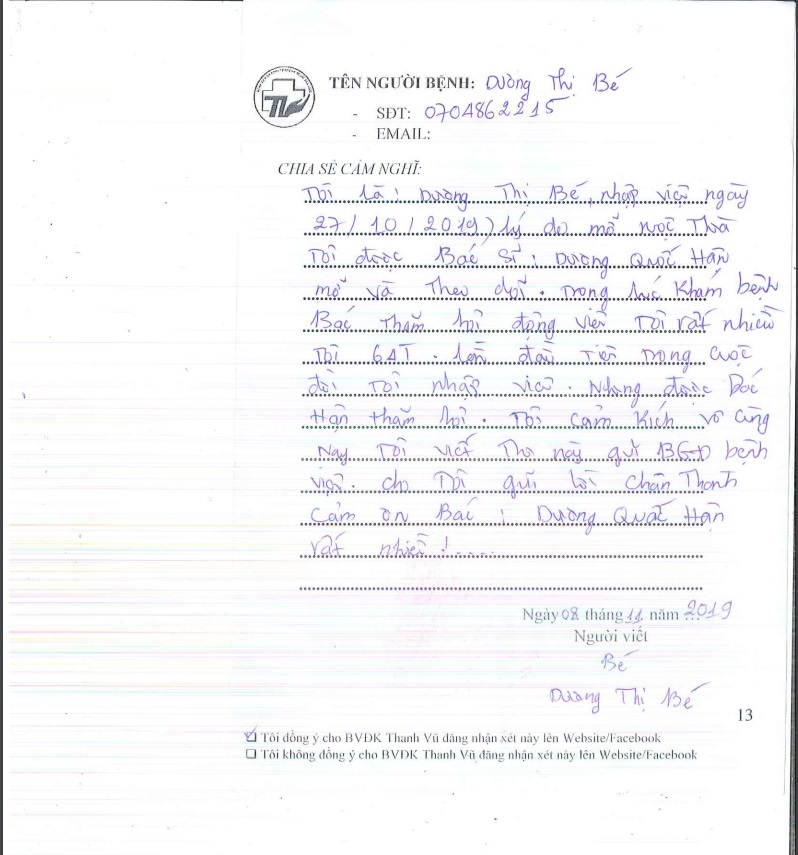 TÊN NGƯỜI BỆNH: Dương Thị Bé
- SĐT: 0704862215
- EMAIL:
CHIA SẺ CẢM NGHĨ:
Tôi là: Dương Thị Bé, nhập viện ngày
27/10/2019) lý do mổ ruọt Thừa
Tôi được Bác Sĩ: Dương Quốc Hận
mổ và Theo dỏi. Trong lúc Khám bệnh
Bác Thăm hỏi động viên Tôi rất nhiều
Tôi 64T. lần đầu Tiên Trong cuộc
đời Tôi nhập viện. Nhưng được Bác
Hận thăm hỏi. Tôi cảm Kích vô cùng
Nay Tôi viết Thơ này gửi BGĐ bệnh
viện. cho Tôi gửi lời Chân Thành
Cảm ơn Bác: Dương Quốc Hận
rất nhiều!.....
Ngày 08 tháng 11 năm 2019
Người viết
Bé
Dương Thị Bé
13
Tôi đồng ý cho BVĐK Thanh Vũ đăng nhận xét này lên Website/Facebook
Tôi không đồng ý cho BVĐK Thanh Vũ đăng nhận xét này lên Website/Facebook